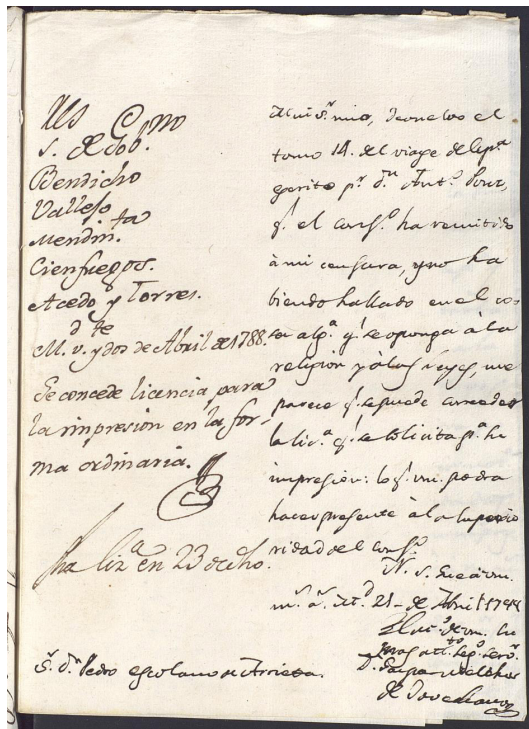 SS.res Exmo
S. r de Gob.
Bendicho
Vallejo
Mendin.ta
Cienfuegos.
Acedo y Torres.
M.d v.te y dos de Abril de 1788.
Se concede licencia para
la impresion en la for-
ma ordinaria.
fha liz.a en 23 de dho.
Mui S.r mio, devuelvo el
tomo 14. del viage de Esp.a
escrito p.r d.n Ant.o Ponz,
q.e el cons.o ha remitido
à mi censura, y no ha
biendo hallado en el co-
sa alg.a q.e se oponga à la
religion y à las leyes, me
parece q.e se puede conceder
la lic.a q.e se solicita p.a su
impresion: lo q.e vm. podrá
hacer presente à la superio
ridad del cons.o
N. S. gue à vm.
m.s a.s M.d 21 de Abril 1788
B. l. m. de vm. su
mas att.to seg.o serv.r
D. Gaspar Melchor
de Jovellanos
S.r D.n Pedro Escolano de Arrieta.